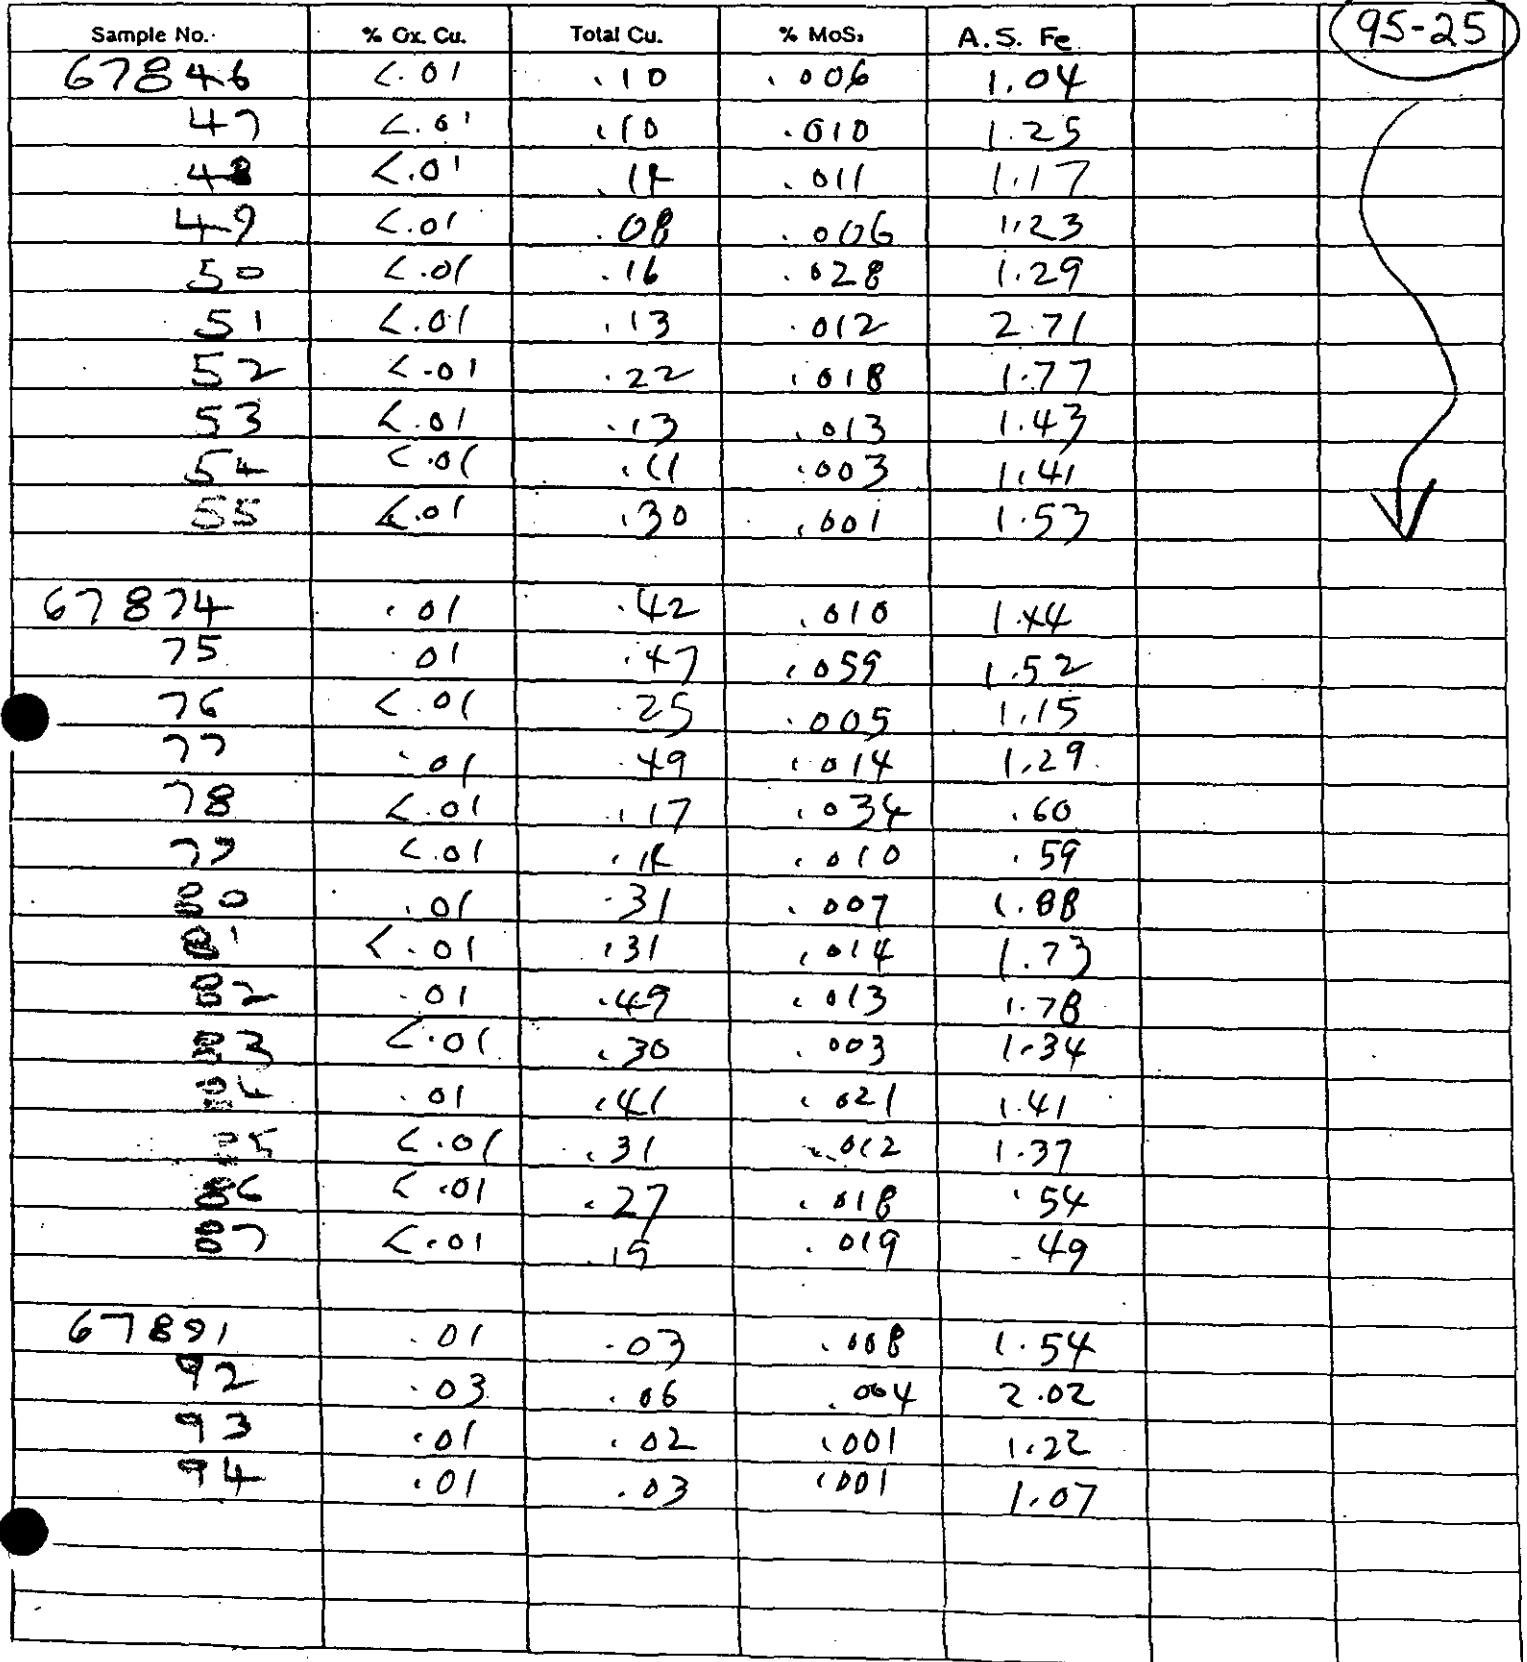 Sample No. % Ox. Cu. Total Cu. % MoS₂ A. S. Fe 95-25
67846 <.01 .10 .006 1.04
47 <.01 .10 .010 1.25
48 <.01 .14 .011 1.17
49 <.01 .08 .006 1.23
50 <.01 .16 .028 1.29
51 <.01 .13 .012 2.71
52 <.01 .22 .018 1.77
53 <.01 .13 .013 1.43
54 <.01 .11 .003 1.41
55 <.01 .30 .001 1.53
67874 .01 .42 .010 1.44
75 .01 .47 .059 1.52
76 <.01 .25 .005 1.15
77 .01 .49 .014 1.29
78 <.01 .17 .034 .60
79 <.01 .14 .010 .59
80 .01 .31 .007 1.88
81 <.01 .31 .014 1.73
82 .01 .49 .013 1.78
83 <.01 .30 .003 1.34
84 .01 .41 .021 1.41
85 <.01 .31 .012 1.37
86 <.01 .27 .018 .54
87 <.01 .019 .49
67891 .01 .03 .008 1.54
92 .03 .06 .004 2.02
93 .01 .02 .001 1.22
94 .01 .03 .001 1.07